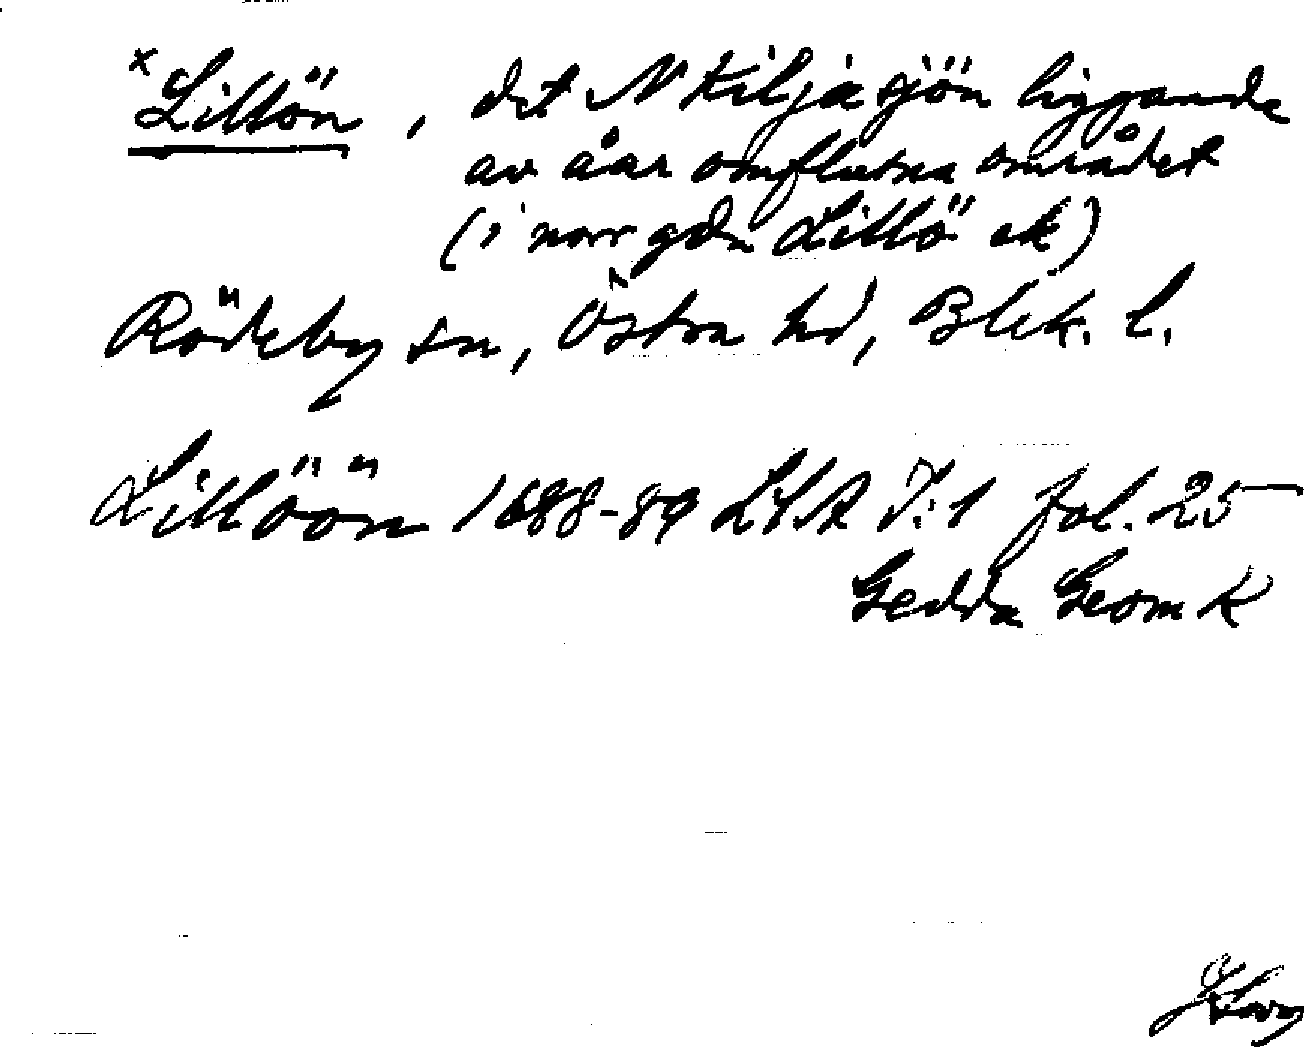 x Lillön, det N Kiljasjön liggande
av åar omflutna området
(i norr gdn Lillö ek)
Rödeby sn, Östra hd, Blek. l.
Lillöön 1688-89 LSA I:1 fol. 25
Gedda Geom K